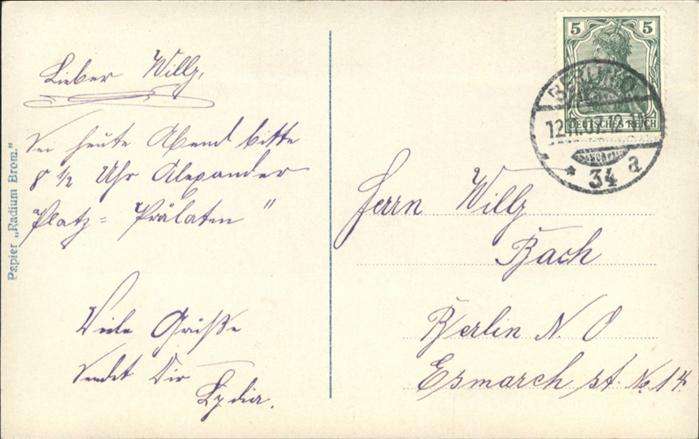 Lieber Willy,
Sei heute Abend bitte
8 1/2 Uhr Alexander
Platz = Prälaten"
Viele Grüße
sendet Dir
Lydia.
Papier „Radium Brom."
5 5
DEUTSCHES REICH
BERLIN
12.11.07.12
34 a
Herrn Willy
Bach
Berlin N. O
Esmarch st. No 14